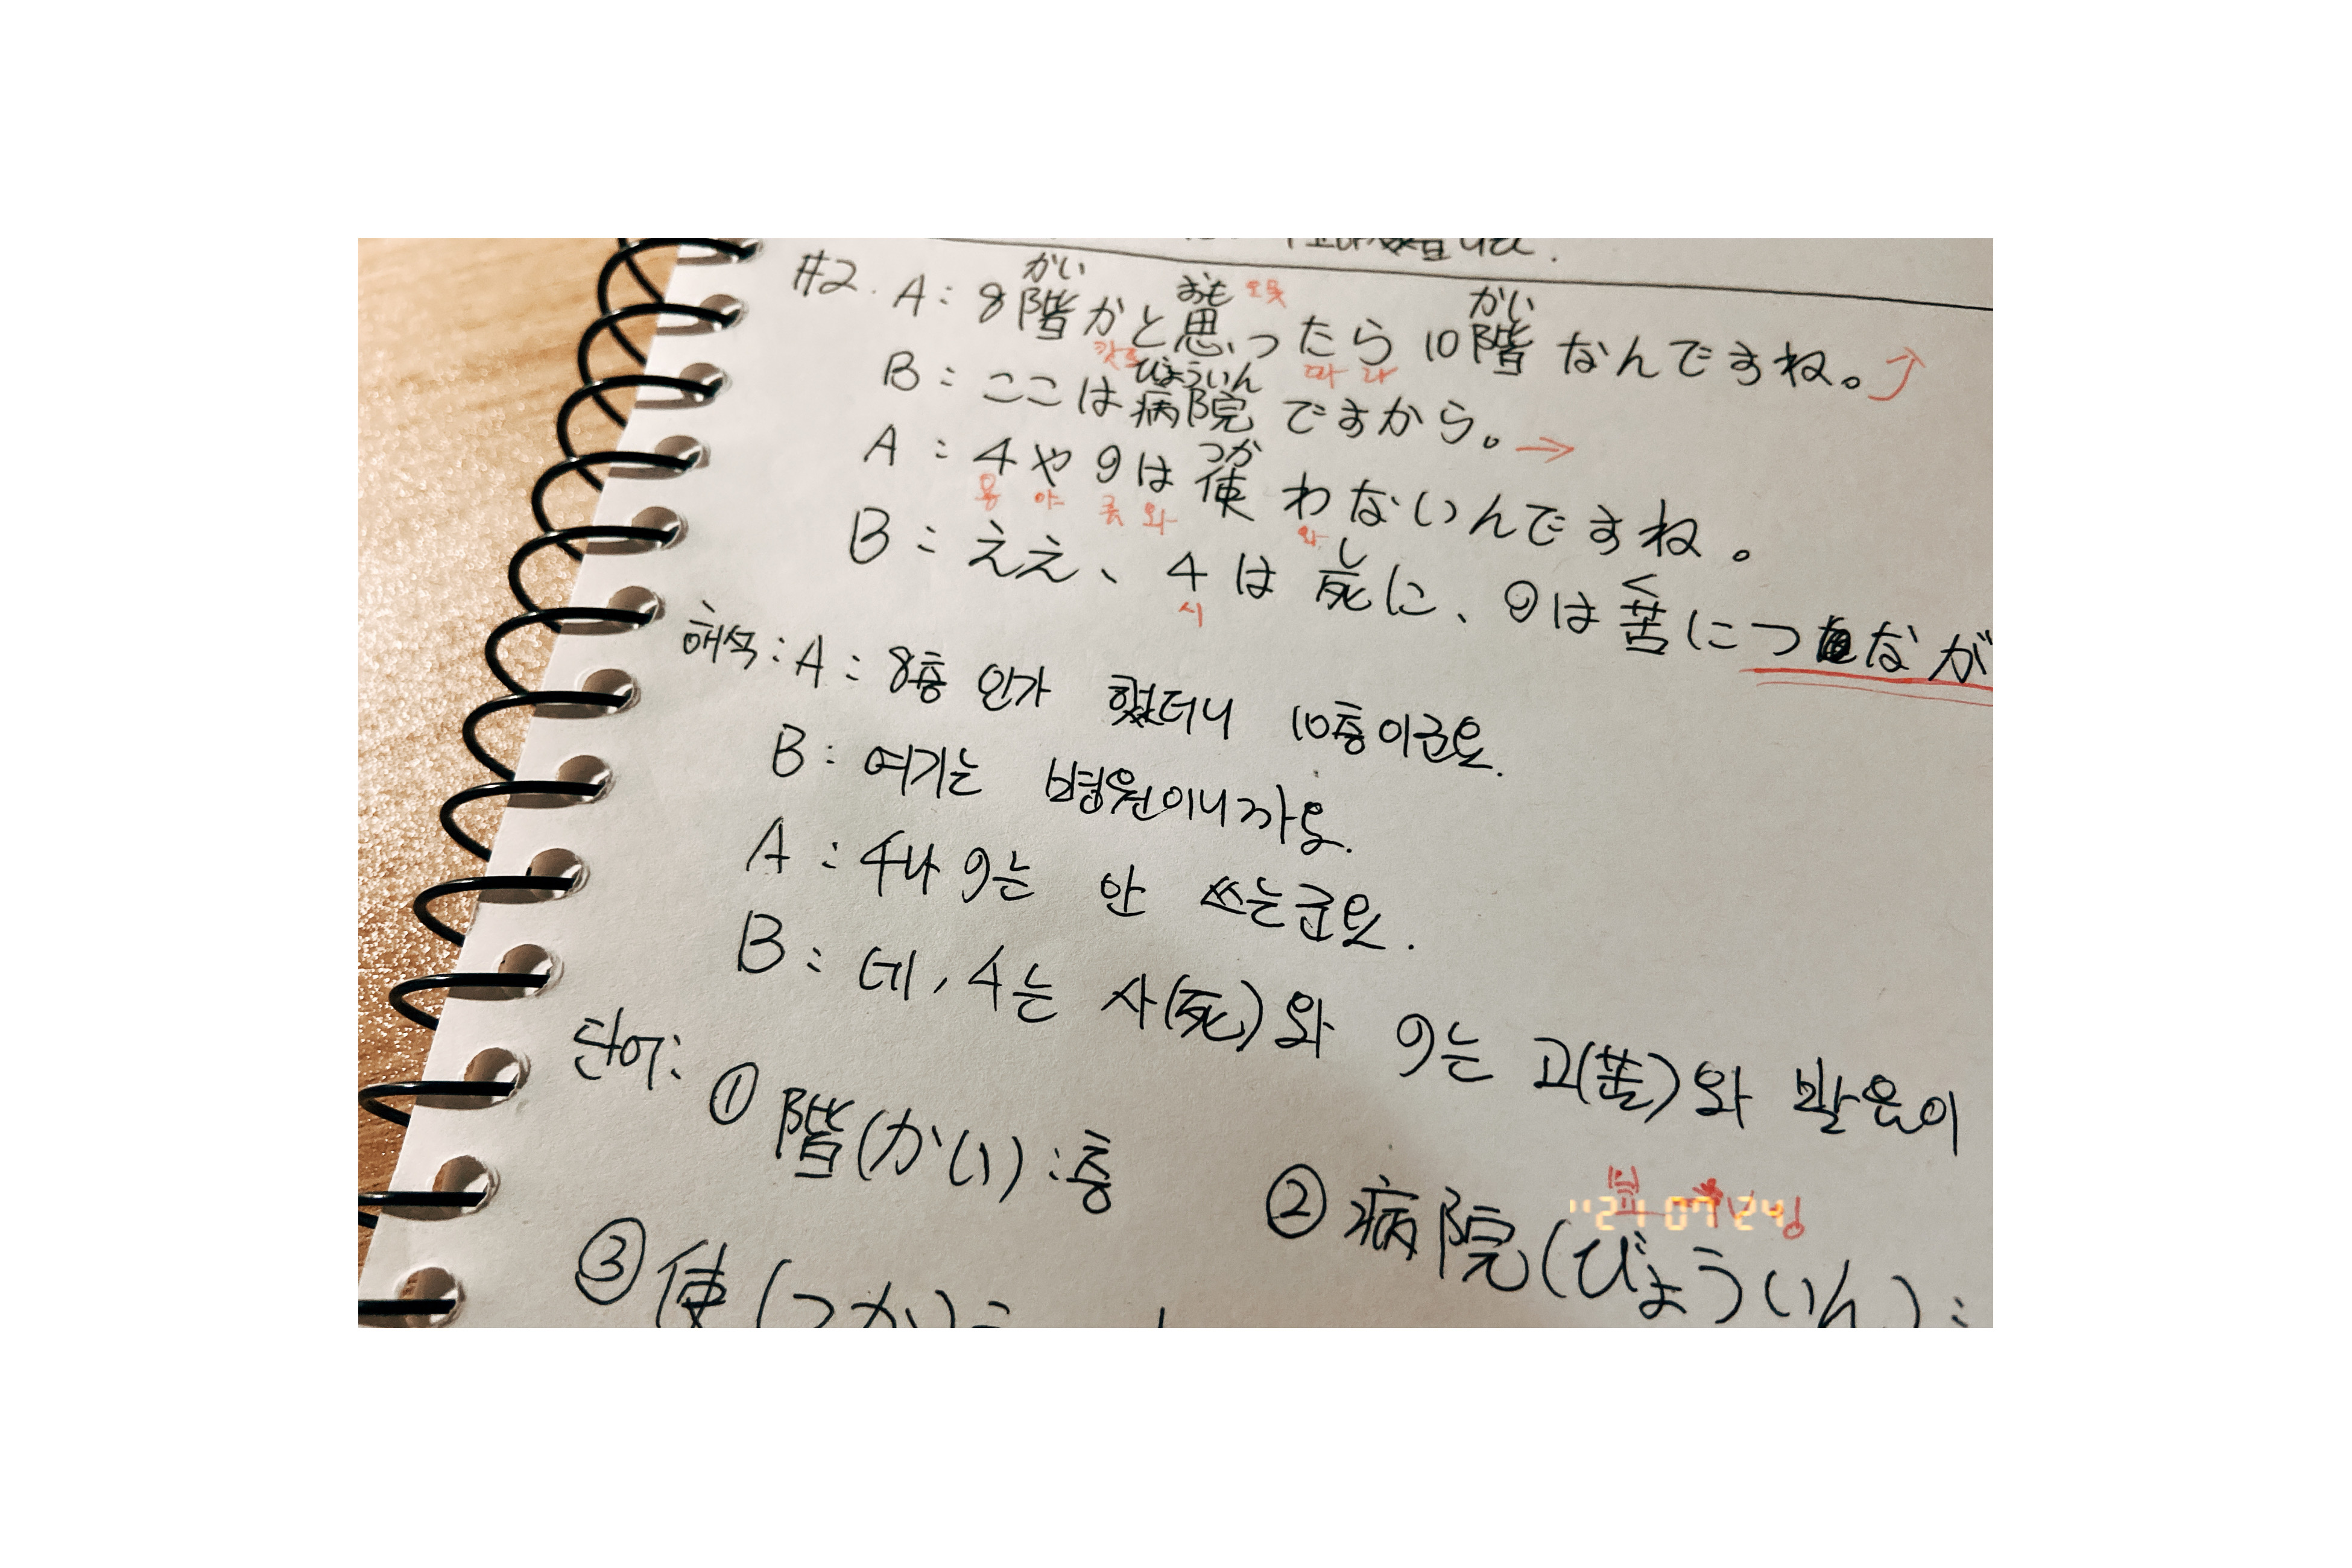 かい おも 오못 かい
#2. A: 8階かと思ったら 10階なんですね。
びょういん 따 라
B: ここは病院ですから。
つか
A: 4や 9は使わないんですね。
욘 야 큐 와 와
し く
B: ええ、4は死に、9は苦につなが
시
해석: A: 8층인가 했더니 10층이군요.
B: 여기는 병원이니까요.
A: 4나 9는 안 쓰는군요.
B: 네, 4는 사(死)와 9는 고(苦)와 발음이
단어: ① 階(かい):층
'21 07 24
② 病院(びょういん):
③ 使(つか)